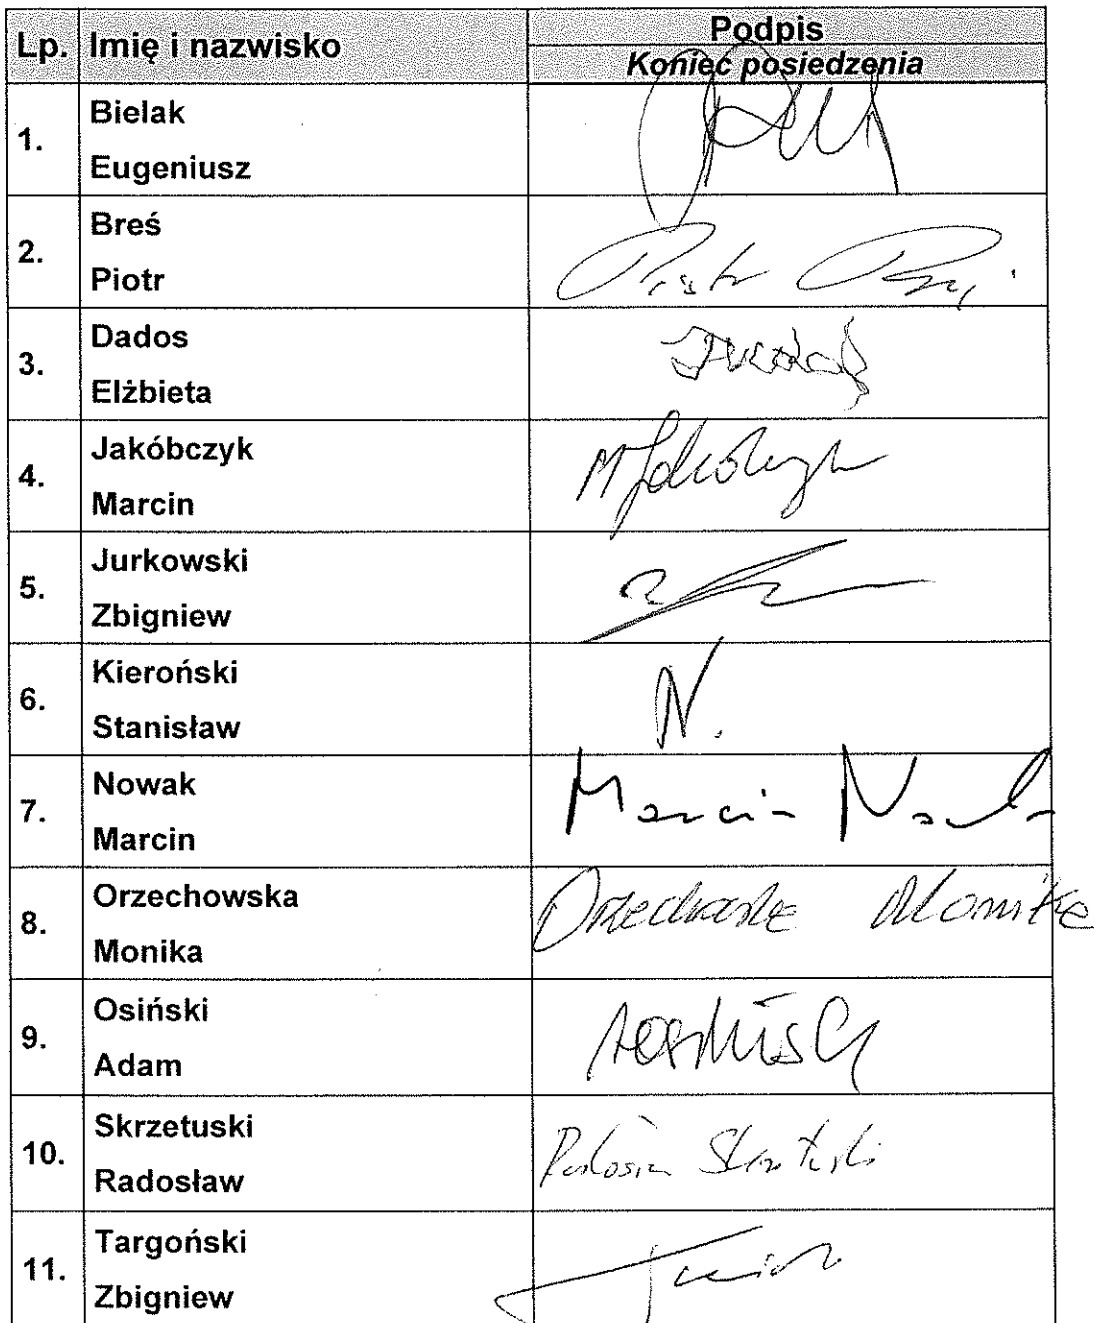 Lp. Imię i nazwisko
Podpis
Koniec posiedzenia
1.
Bielak
Eugeniusz
2.
Breś
Piotr
Piotr
3.
Dados
Elżbieta
4.
Jakóbczyk
Marcin
5.
Jurkowski
Zbigniew
6.
Kieroński
Stanisław
N.
7.
Nowak
Marcin
Marcin Nowak
8.
Orzechowska
Monika
Orzechowska Monika
9.
Osiński
Adam
10.
Skrzetuski
Radosław
Radosław Skrzetuski
11.
Targoński
Zbigniew